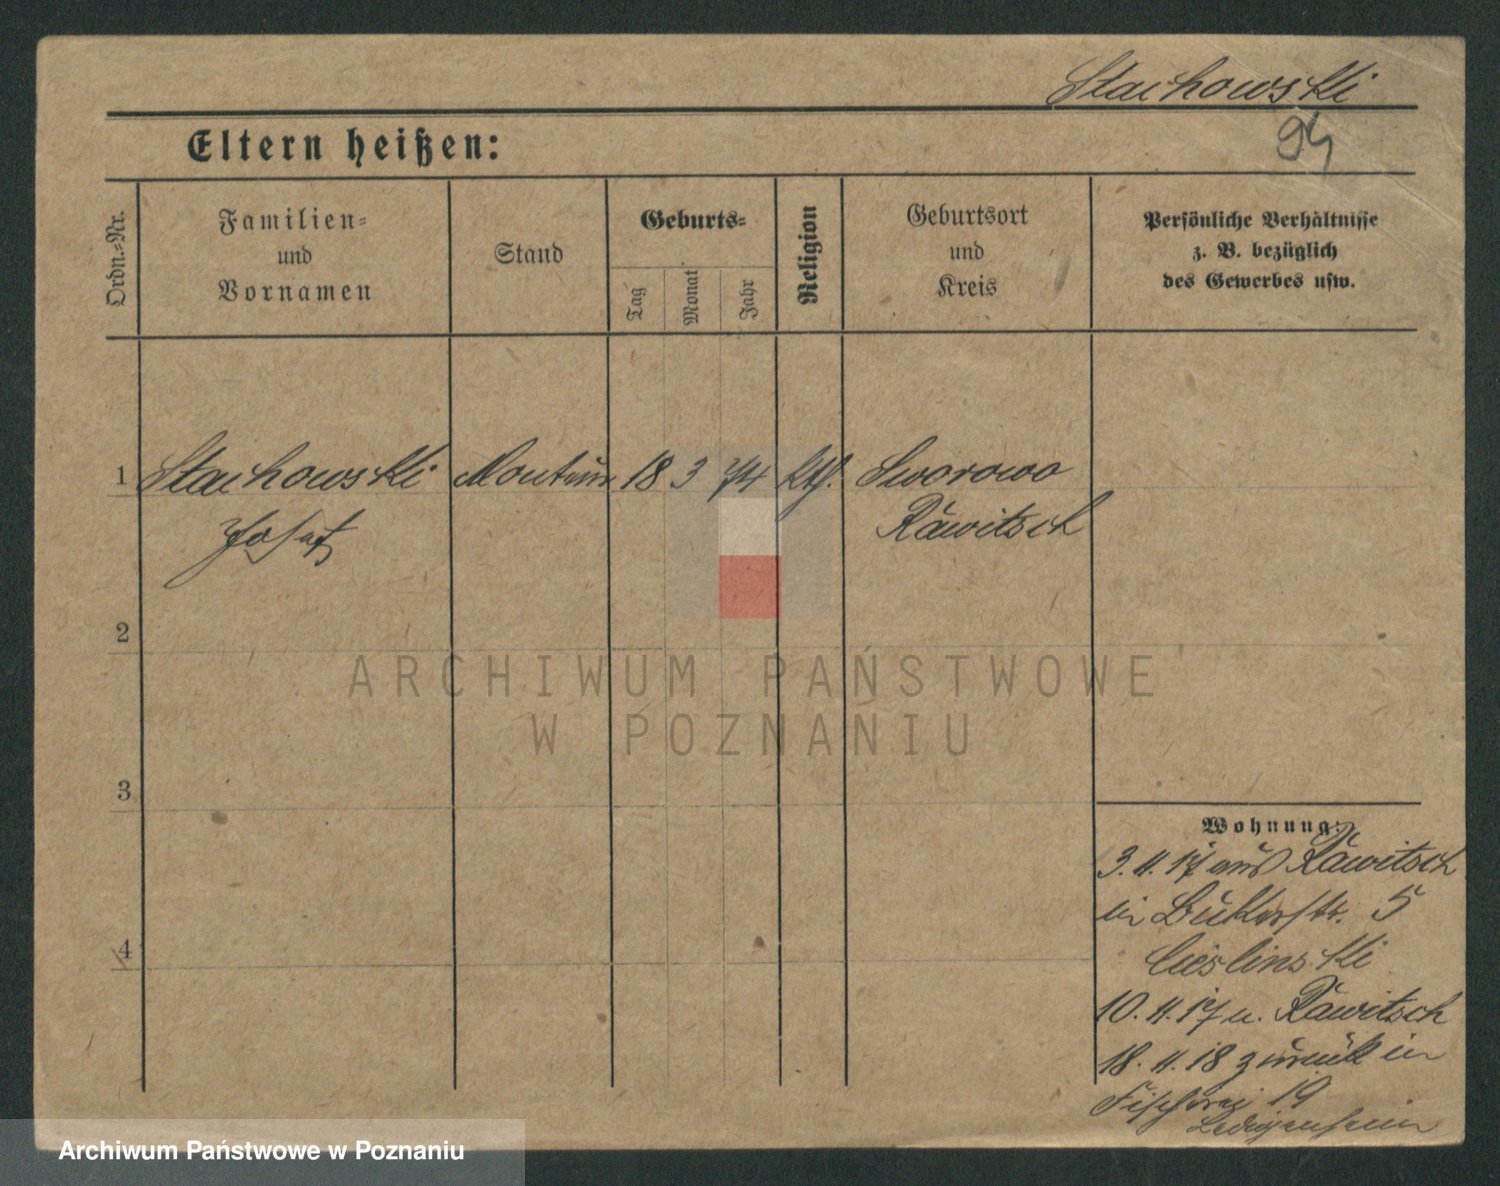 Stachowski
94
Eltern heißen:
Ordn.-Nr.
Familien-
und
Vornamen
Stand
Geburts-
Tag
Monat
Jahr
Religion
Geburtsort
und
Kreis
Persönliche Verhältnisse
z. B. bezüglich
des Gewerbes usw.
1 Stachowski Monteur 18 3 74 kth. Sworowo
Josef Rawitsch
2
ARCHIWUM PAŃSTWOWE
W POZNANIU
3
Wohnung:
3. 11. 17 aus Rawitsch
in Bukerstr. 5
Cieslinski
10. 11. 17 n. Rawitsch
4
18. 11. 18 zurück in
Fischerei 19
Ledigenheim
Archiwum Państwowe w Poznaniu